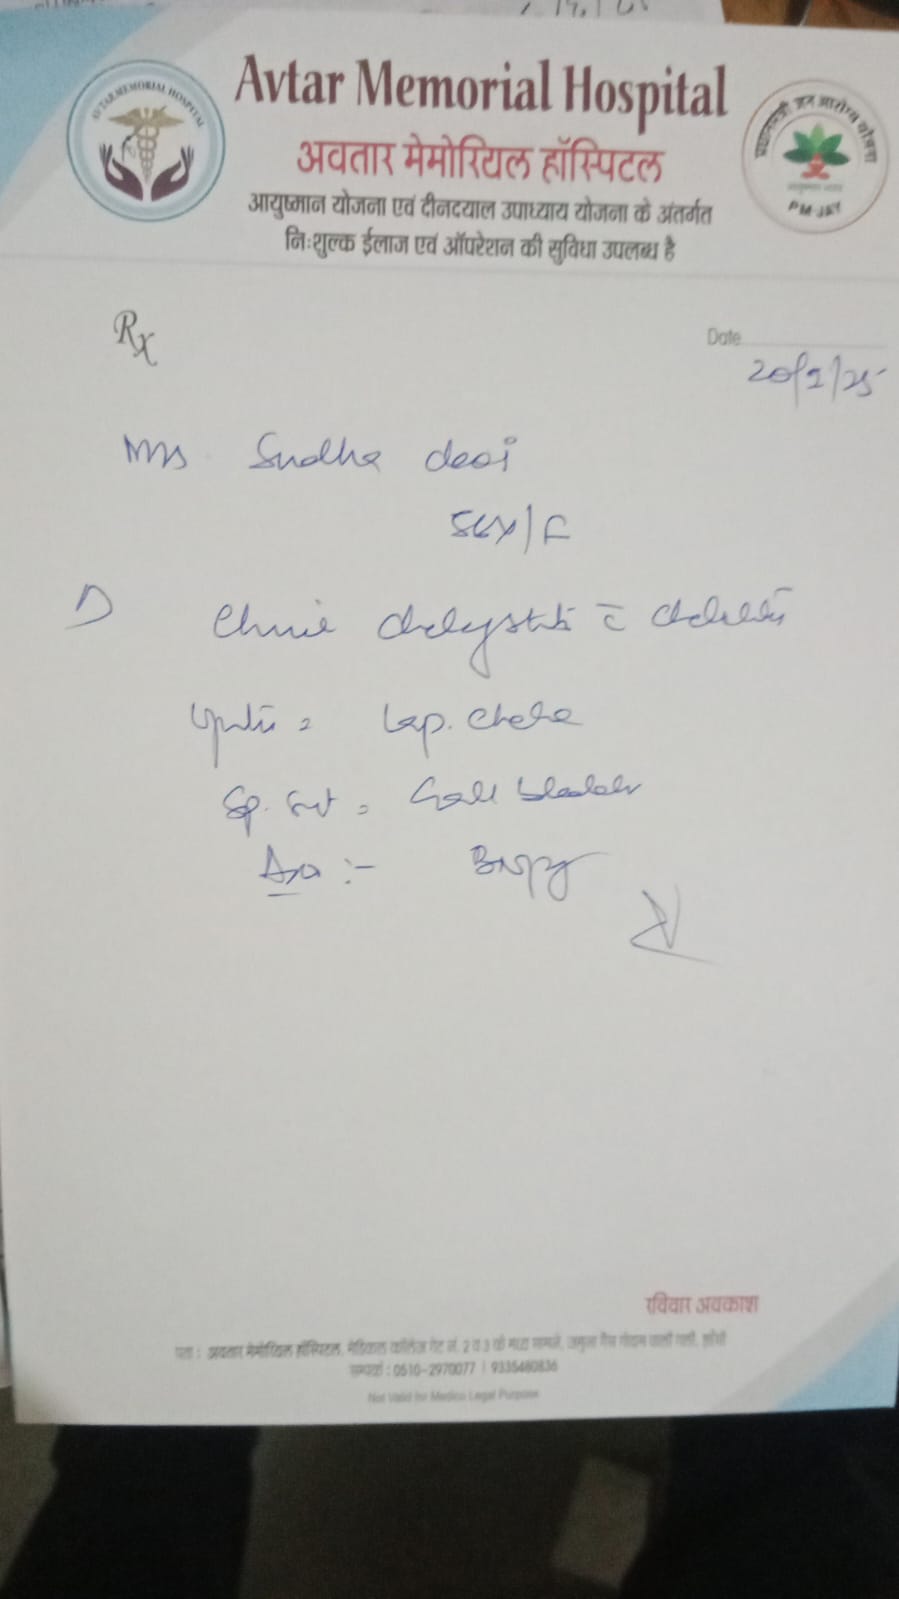 Avtar Memorial Hospital
AVTAR MEMORIAL HOSPITAL
अवतार मेमोरियल हॉस्पिटल
प्रधानमंत्री जन आरोग्य योजना
आयुष्मान भारत
PM-JAY
आयुष्मान योजना एवं दीनदयाल उपाध्याय योजना के अंतर्गत
निःशुल्क ईलाज एवं ऑपरेशन की सुविधा उपलब्ध है
Rx
Date
Mrs Sudha devi
D
Lap. Chole
Gall bladder
Adv :- Biopsy
रविवार अवकाश
पता : अवतार मेमोरियल हॉस्पिटल, मेडिकल कॉलेज गेट नं. 2 व 3 के मध्य सामने, जमुना गैस गोदाम वाली गली, झांसी
सम्पर्क : 0510-2970077 | 9335480836
Not Valid for Medico Legal Purpose